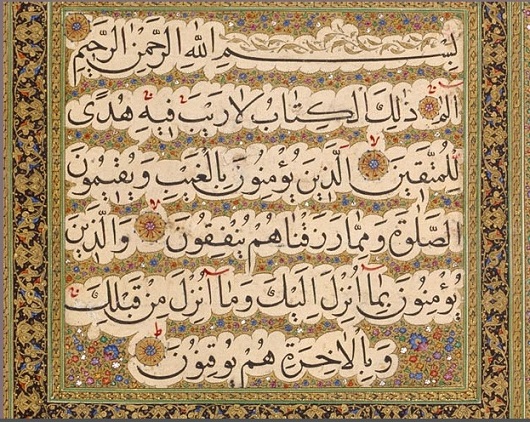 بِسْمِ اللّٰهِ الرَّحْمٰنِ الرَّحٖيمِ
الٓمٓ ذٰلِكَ الْكِتَابُ لَارَيْبَ فٖيهِ هُدًى
لِلْمُتَّقٖينَ اَلَّذٖينَ يُؤْمِنُونَ بِالْغَيْبِ وَيُقٖيمُونَ
الصَّلٰوةَ وَمِمَّا رَزَقْنَاهُمْ يُنْفِقُونَ وَالَّذٖينَ
يُؤْمِنُونَ بِمَٓا اُنْزِلَ اِلَيْكَ وَمَٓا اُنْزِلَ مِنْ قَبْلِكَ
وَبِالْاٰخِرَةِ هُمْ يُوقِنُونَ